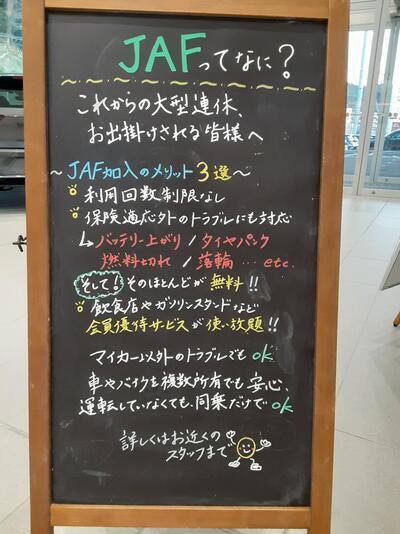 JAFってなに？
これからの大型連休、
お出掛けされる皆様へ
～JAF加入のメリット3選～
利用回数制限なし
保険適応外のトラブルにも対応
↳バッテリー上がり / タイヤパンク
燃料切れ / 落輪…etc.
そして！そのほとんどが無料!!
飲食店やガソリンスタンドなど
会員優待サービスが使い放題!!
マイカー以外のトラブルでもok
車やバイクを複数所有でも安心、
運転していなくても、同乗だけでok
詳しくはお近くの
スタッフまで